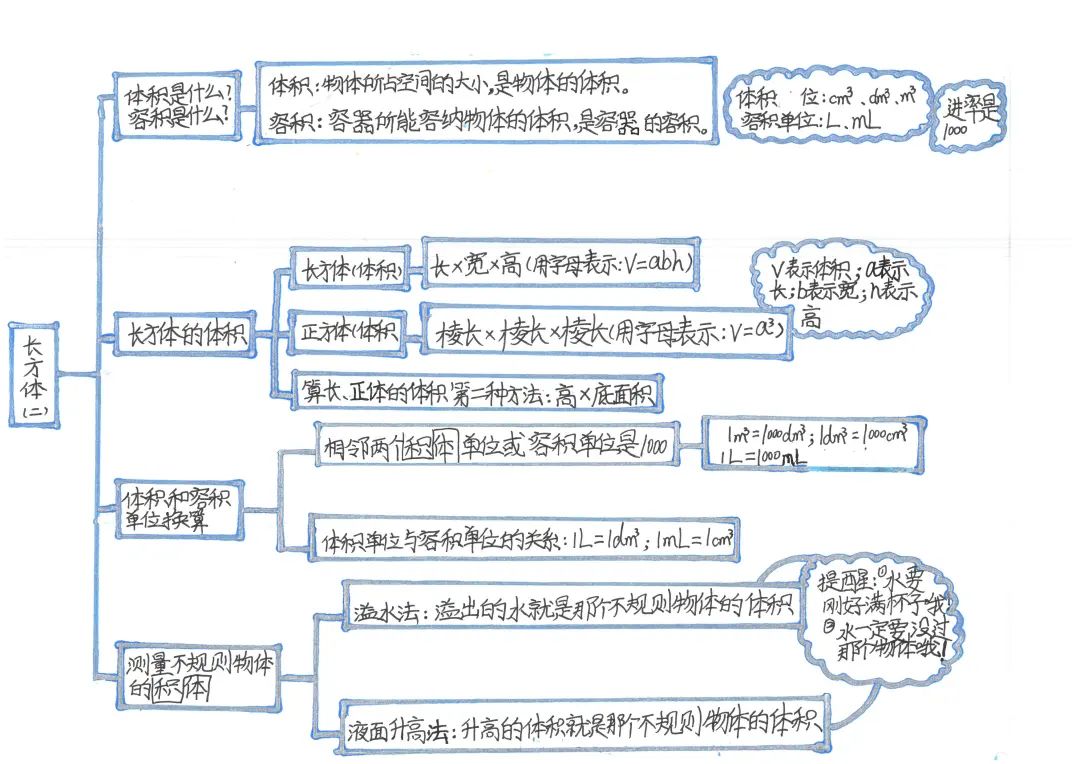 体积是什么?
容积是什么?
体积:物体所占空间的大小,是物体的体积。
容积:容器所能容纳物体的体积,是容器的容积。
体积 位:cm³、dm³、m³
容积单位:L、mL
进率是
1000
长方体(二)
长方体的体积
长方体(体积)
长×宽×高(用字母表示:V=abh)
V表示体积;a表示
长;b表示宽;h表示
高
正方体(体积
棱长×棱长×棱长(用字母表示:V=a³)
算长、正体的体积第二种方法:高×底面积
体积和容积
单位换算
相邻两个积体单位或容积单位是1000
1m³=1000dm³;1dm³=1000cm³
1L=1000mL
体积单位与容积单位的关系:1L=1dm³;1mL=1cm³
测量不规则物体
的积体
溢水法:溢出的水就是那个不规则物体的体积
提醒:①水要
刚好满杯子哦!
②水一定要没过
那个物体哦!
液面升高法:升高的体积就是那个不规则物体的体积